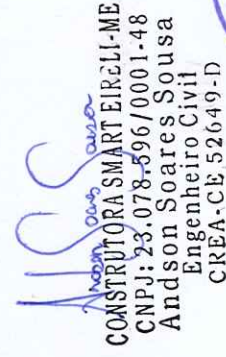 CONSTRUTORA SMART EIRELI-ME
CNPJ: 23.078.596/0001-48
Andson Soares Sousa
Engenheiro Civil
CREA-CE 52649-D